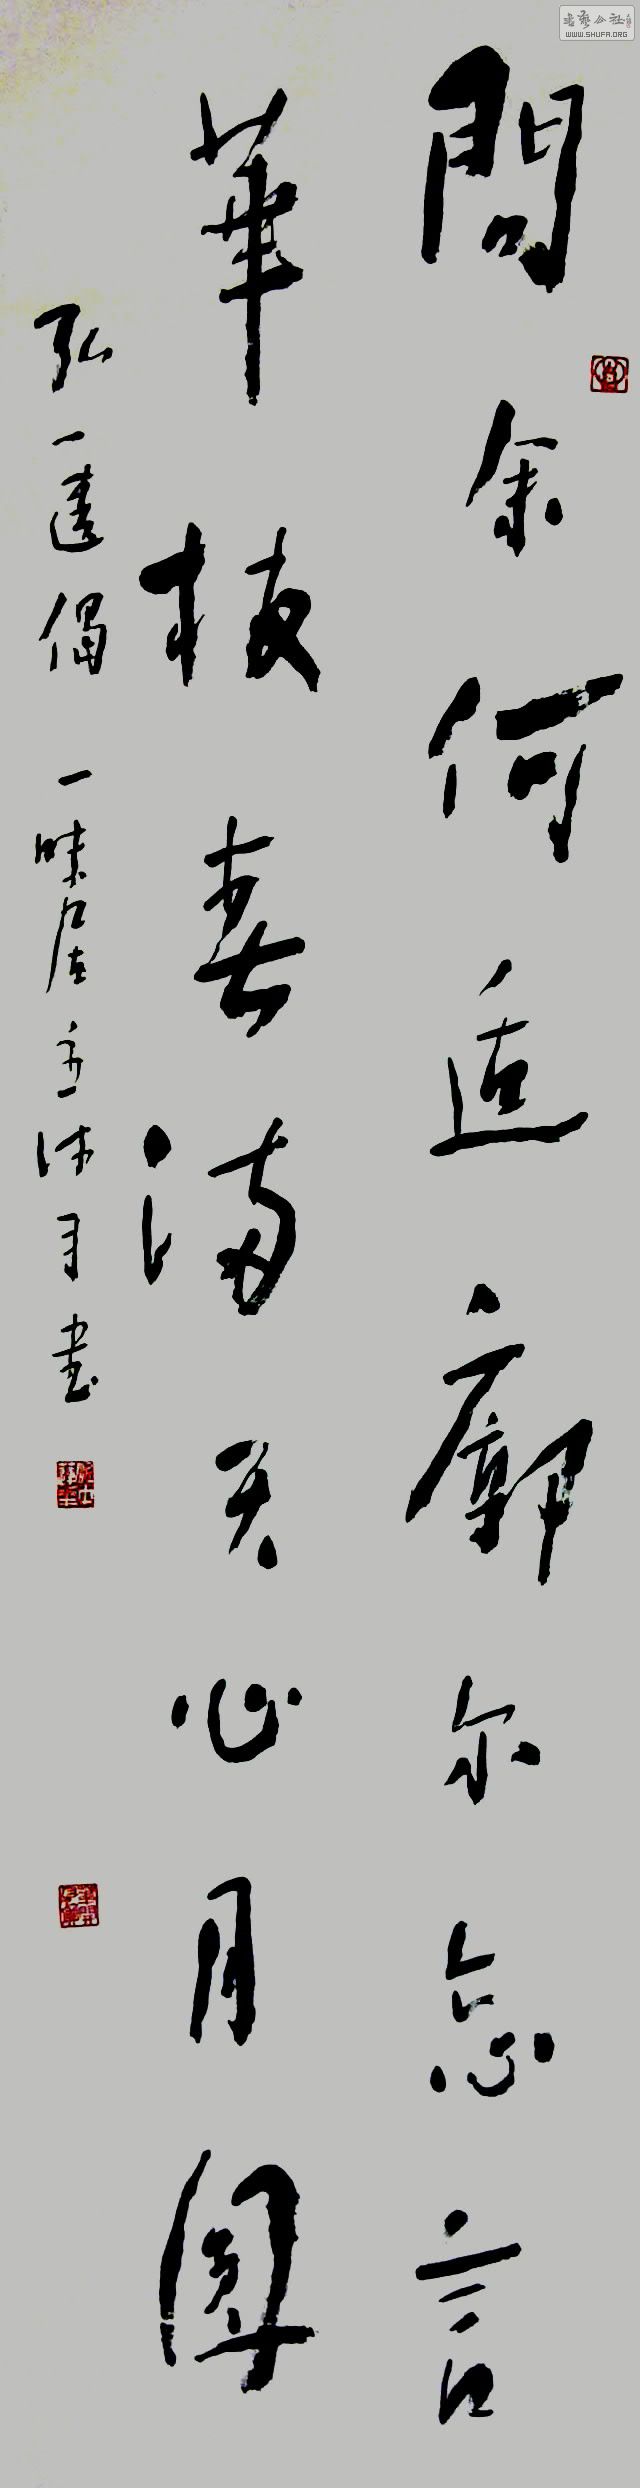 問余何適廓尔忘言
華枝春満天心月圓
弘一遺偈 一味居主沐月書
書藝公社
WWW.SHUFA.ORG